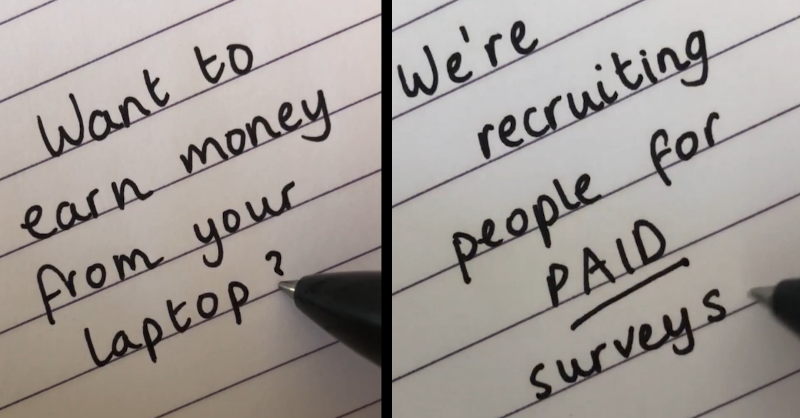 Want to
earn money
from your
laptop?
We're
recruiting
people for
PAID
surveys